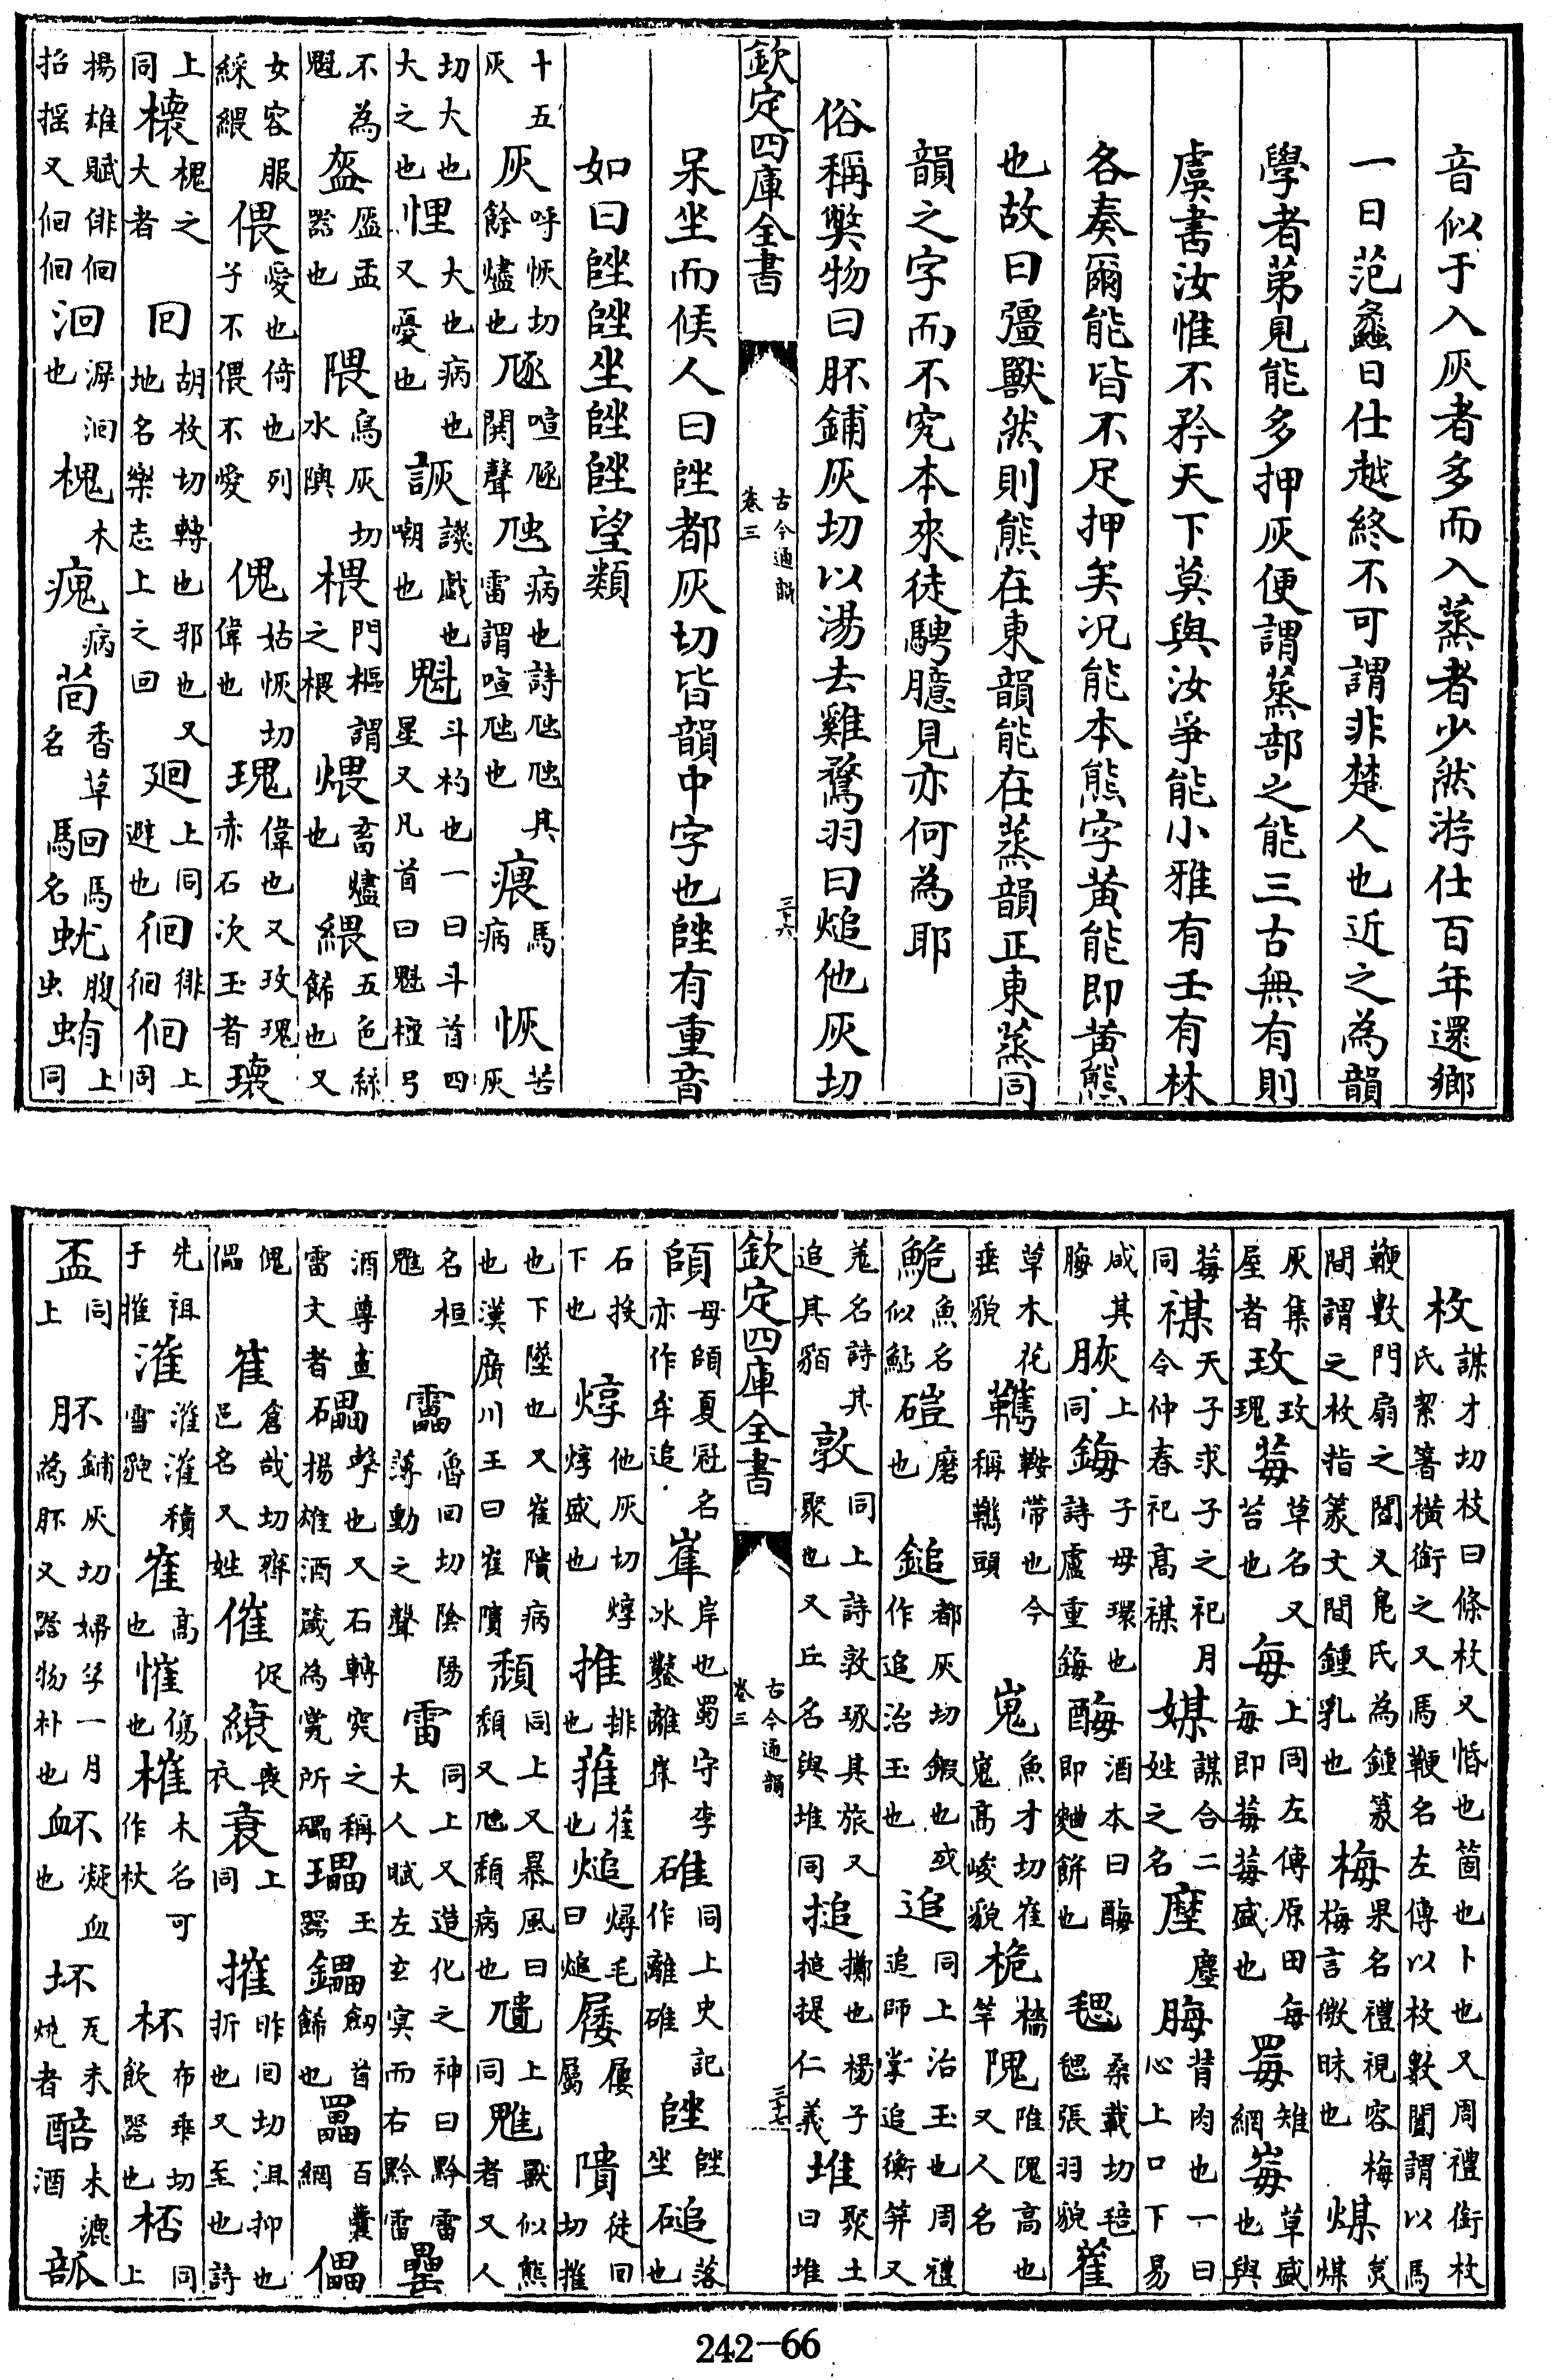 音似于入灰者多而入蒸者少然游仕百年還鄉
一日范蠡日仕越終不可謂非楚人也近之為韻
學者第見能多押灰便謂蒸部之能三古無有則
虞書汝惟不矜天下莫與汝爭能小雅有壬有林
各奏爾能皆不足押矣况能本熊字黄能即黄熊
也故曰彊獸然則熊在東韻能在蒸韻正東蒸同
韻之字而不究本來徒騁臆見亦何為耶
俗稱獘物曰肧鋪灰切以湯去雞鶩羽曰煺他灰切
欽定四庫全書
古今通韻
卷三
三十六
呆坐而候人曰都灰切皆韻中字也有重音
如曰坐望類
十五灰灰呼恢切餘燼也豗喧豗鬨聲虺病也詩虺虺其雷謂喧虺也㾯馬病恢苦灰
切大也大之也悝大也病也又憂也詼譏戯也嘲也魁斗杓也一曰斗首四星又凡首曰魁檀弓
不為魁盔盔盂器也隈烏灰切水隩椳門樞謂之椳煨畜燼也緦五色絲餙也又
女容服綵緦偎愛也倚也列子不偎不愛傀姑恢切偉也瑰偉也又玫瑰赤石次玉者瓌
上同櫰槐之大者回胡枚切轉也邪也又地名樂志上之回廻上同避也徊徘徊佪上同
揚雄賦徘徊招揺又佪佪洄㳽洄也槐木瘣病茴香草名回馬馬名蚘腹虫蛕上同
枚謀才切枝曰條枚又惛也箇也卜也又周禮銜枚氏絮箸橫銜之又馬鞭名左傳以枚數闔謂以馬
鞭數門扇之闔又鳬氏為鍾篆間謂之枚指篆文間鍾乳也梅果名禮視容梅梅言微昧也煤炱煤
灰集屋者玫玫瑰莓草名又苔也每上同左傳原田每每即莓莓盛也罞雉網莓草盛也與
莓同禖天子求子之祀月令仲春祀高禖媒謀合二姓之名塺塵脢背肉也一曰心上口下易
咸其脢脄上同鋂子母環也詩盧重鋂酶酒本曰酶即麯餅也毸桑載切毰毸張羽貌蓷
草木花垂貌鞲鞍帶也今稱鞲頭嵬魚才切崔嵬高峻貌桅檣竿隗陮隗高也又人名
鮠魚名似鮎磑磨也鎚都灰切鍜也或作追治玉也追同上治玉也周禮追師掌追衡筓又
蒐名詩其追其貊敦同上詩敦琢其旅又聚也又丘名與堆同搥擲也楊子搥提仁義堆聚土曰堆
欽定四庫全書
古今通韻
卷三
三十七
頧母頧夏冠名亦作牟追岸也蜀守李冰鑿離碓同上史記作離碓坐磓落也
石投下也焞他灰切焞焞盛也推排也蓷萑也煺燖毛曰煺㞂屨屬隤徒回切摧
也下墜也又崔隤病也漢廣川王曰崔隤頽同上又暴風曰頽又虺頽病也上同魋獸似熊者又人
名桓魋靁魯回切陰陽薄動之聲雷同上又造化之神曰黔雷大人賦左玄冥而右黔雷罍
酒尊畫雷文者礧擊也又石轉突之稱揚雄酒箴為㼗所礧瓃玉器鑘劒首餙也罍百囊網儡
傀儡崔倉哉切齊邑名又姓催促縗喪衣衰上同摧昨回切沮抑也折也又至也詩
先祖于摧漼漼漼積雪貌崔高也慛傷也槯木名可作杖杯布垂切飲器也桮同上
盃同上肧鋪灰切婦孕一月為肧又器物朴也衃凝血也坏瓦未燒者醅未漉酒瓿
242-66